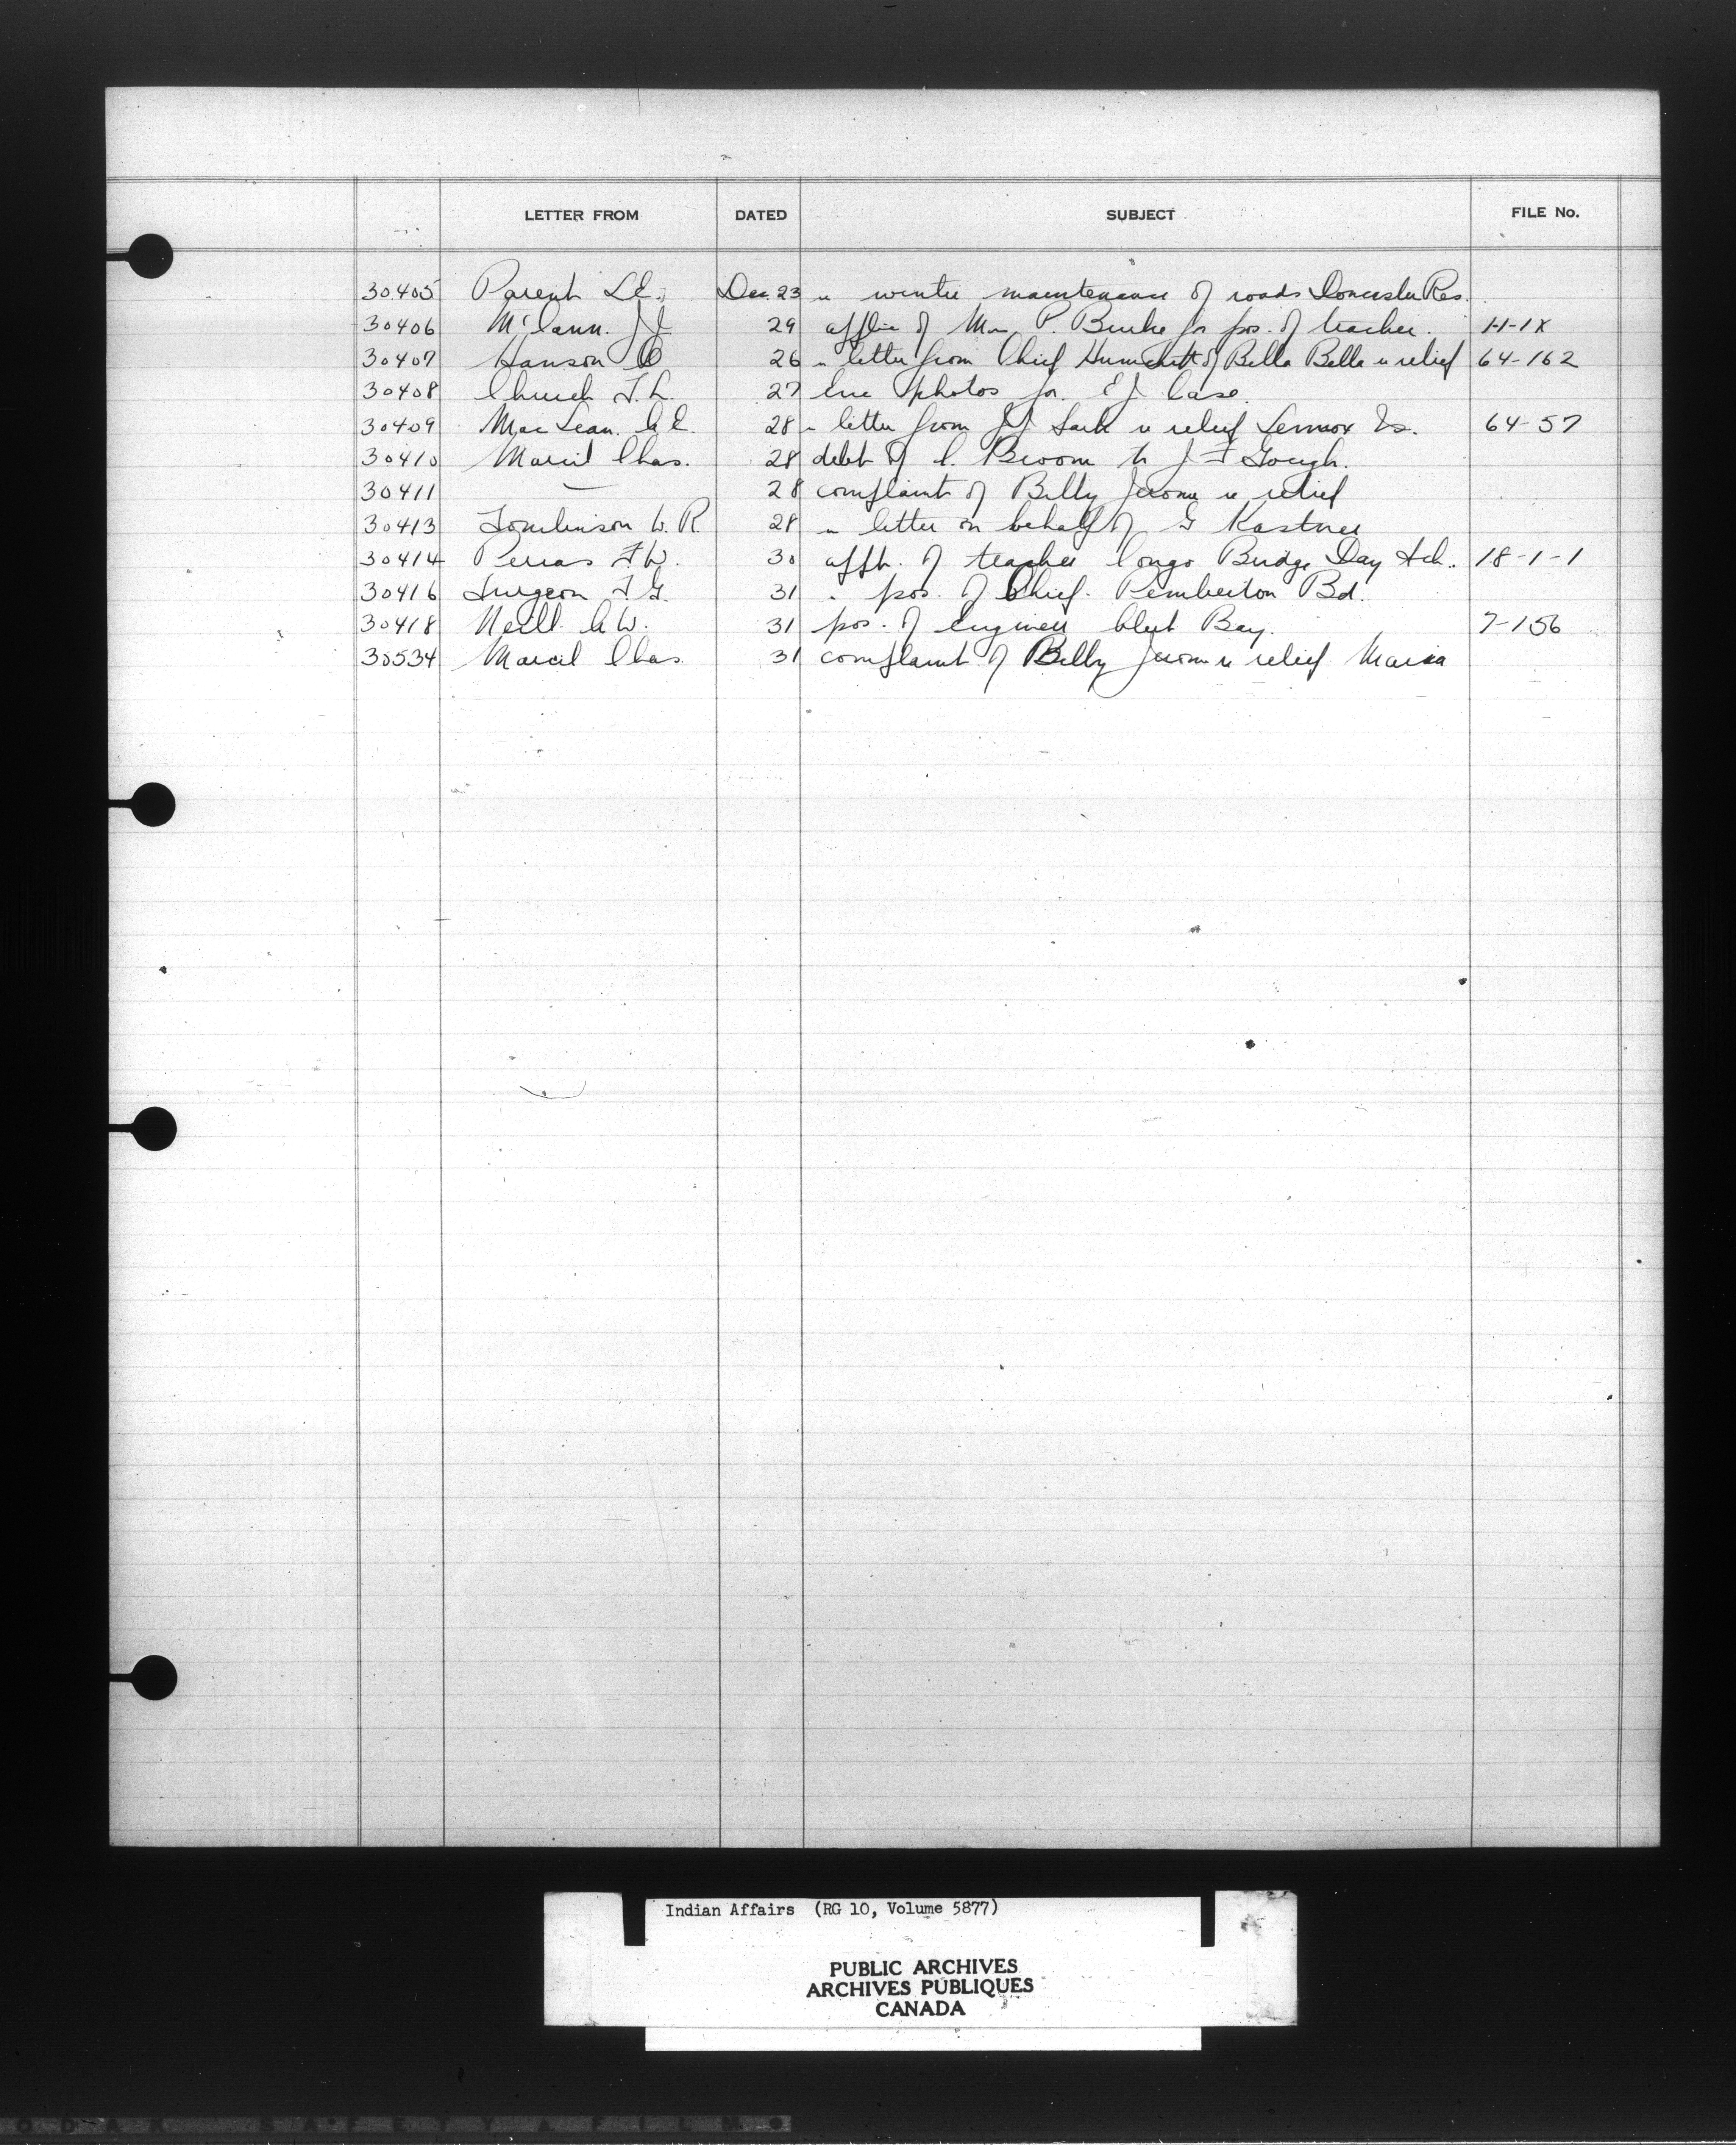 LETTER FROM DATED SUBJECT FILE No.
30405 Parent L.C. Dec. 23 re winter maintenance of roads Doncaster Res.
30406 McCann. J J 29 applic of M P. Burke for pos. of teacher. 1-1-1X
30407 Hanson O 26 " letter from Chief Humchitt of Bella Bella re relief 64-162
30408 Church T. L. 27 Enc photos for E J Case.
30409 MacLean. A.E. 28 " letter from J J Sark re relief Lennox Is. 64-57
30410 Marcil Chas. 28 debt of C. Broom to J F Gough.
30411 — 28 complaint of Billy Jerome re relief
30413 Tomlinson W. R. 28 " letter on behalf of G Kastner
30414 Perras F W. 30 appt. of teacher Congo Bridge Day Sch. 18-1-1
30416 Turgeon J G. 31 " pos. of Chief. Pemberton Bd.
30418 Neill A W. 31 pos. of engineer Alert Bay. 7-156
30534 Marcil Chas. 31 complaint of Billy Jerome re relief Maria
Indian Affairs (RG 10, Volume 5877)
PUBLIC ARCHIVES
ARCHIVES PUBLIQUES
CANADA
SAFETY FILM